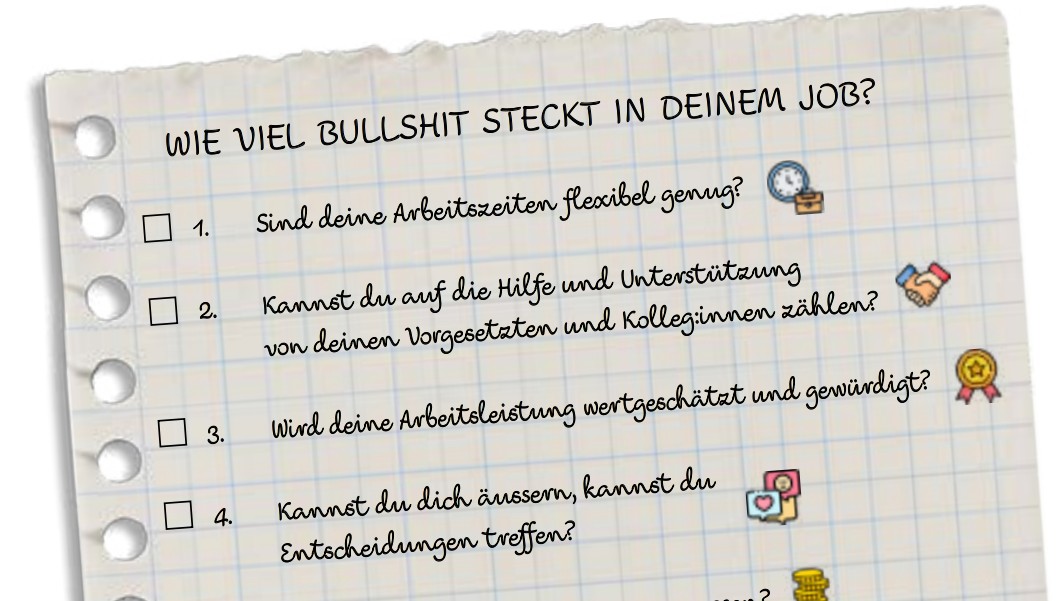 WIE VIEL BULLSHIT STECKT IN DEINEM JOB?
1. Sind deine Arbeitszeiten flexibel genug?
2. Kannst du auf die Hilfe und Unterstützung
von deinen Vorgesetzten und Kolleg:innen zählen?
3. Wird deine Arbeitsleistung wertgeschätzt und gewürdigt?
4. Kannst du dich äussern, kannst du
Entscheidungen treffen?